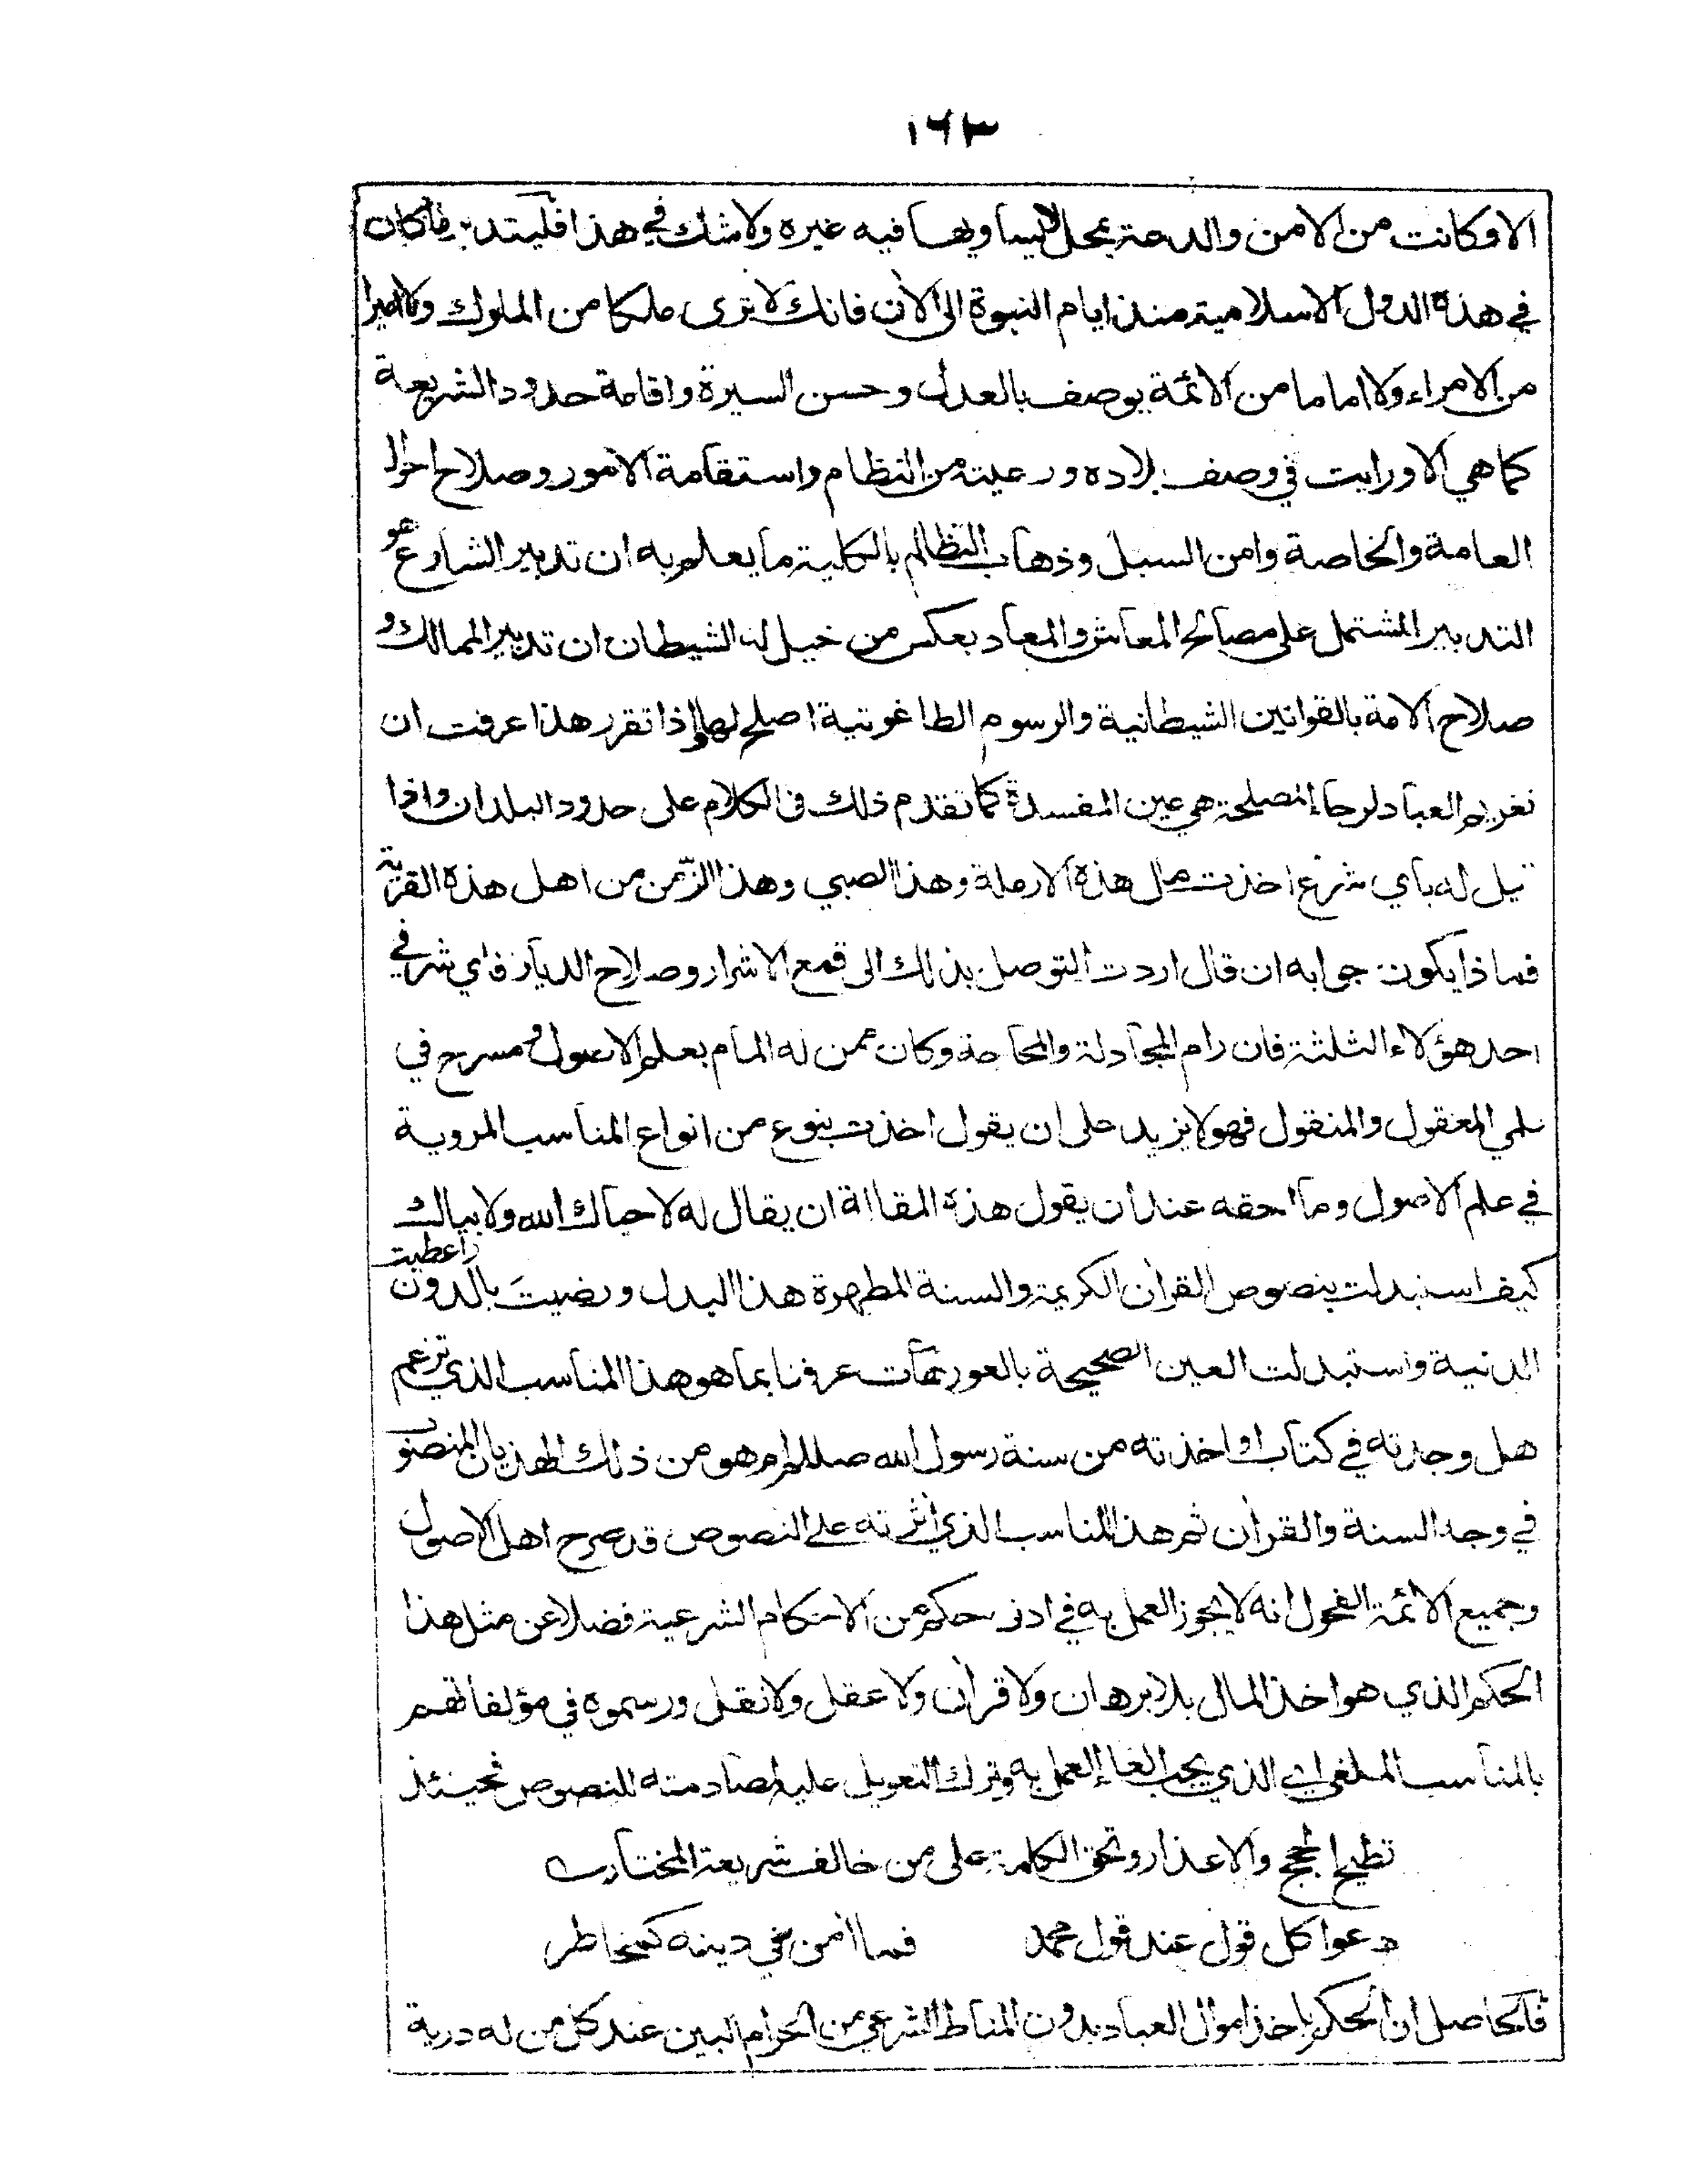 ١٦٣
الا وكانت من الامن والدعة بمحل لا يساويها فيه غيره ولا شك في هذا فليتدبر ما كان
في هذه الدول الاسلامية منذ ايام النبوة الى الآن فانك لا ترى ملكا من الملوك ولا اميرا
من الامراء ولا اماما من الائمة يوصف بالعدل وحسن السيرة واقامة حدود الشريعة
كما هي الا ورايت في وصف بلاده ورعيته من النظام واستقامة الامور وصلاح احوال
العامة والخاصة وامن السبل وذهاب التظالم بالكلية ما يعلم به ان تدبير الشارع هو
التدبير المشتمل على مصالح المعاش والمعاد بعكس من خيل له الشيطان ان تدبير الممالك و
صلاح الامة بالقوانين الشيطانية والرسوم الطاغوتية اصلح لها واذا تقرر هذا عرفت ان
تغريم العباد لرجاء المصلحة هي عين المفسدة كما تقدم ذلك في الكلام على حدود البلدان واذا
قيل له باي شرع اخذت مال هذه الارملة وهذا الصبي وهذا الزمن من اهل هذه القرية
فماذا يكون جوابه ان قال اردت التوصل بذلك الى قمع الاشرار وصلاح الديار فاي شر في
احد هؤلاء الثلثة فان رام المجادلة والمحاجة وكان ممن له المام بعلم الاصول ومسرح في
علمي المعقول والمنقول فهو لا يزيد على ان يقول اخذت بنوع من انواع المناسب المروية
في علم الاصول وما احقه عند ان يقول هذه المقالة ان يقال له لا حياك الله ولا بياك
كيف استبدلت بنصوص القرآن الكريمة والسنة المطهرة هذا البدل ورضيت بالدون واعطيت
الدنية واستبدلت العين الصحيحة بالعور هات عرفنا بما هو هذا المناسب الذي تزعم
هل وجدته في كتاب او اخذته من سنة رسول الله صللم ام هو من ذلك الهذيان المنصوب
في وجه السنة والقرآن ثم هذا المناسب الذي آثرته على النصوص قد صرح اهل الاصول
وجميع الائمة الفحول انه لا يجوز العمل به في ادنى حكم من الاحكام الشرعية فضلا عن مثل هذا
الحكم الذي هو اخذ المال بلا برهان ولا قرآن ولا عقل ولا نقل ورسموه في مؤلفاتهم
بالمناسب الملغى اي الذي يجب الغاء العمل به وترك التعويل عليه لمصادمته للنصوص فحينئذ
تطيح الحجج والاعذار وتحق الكلمة على من خالف شريعة المختار
دعوا كل قول عند قول محمد فما آمن في دينه كمخاطر
فالحاصل ان الحكم باخذ اموال العباد بدون المناط الشرعي من الحرام البين عند كل من له درية